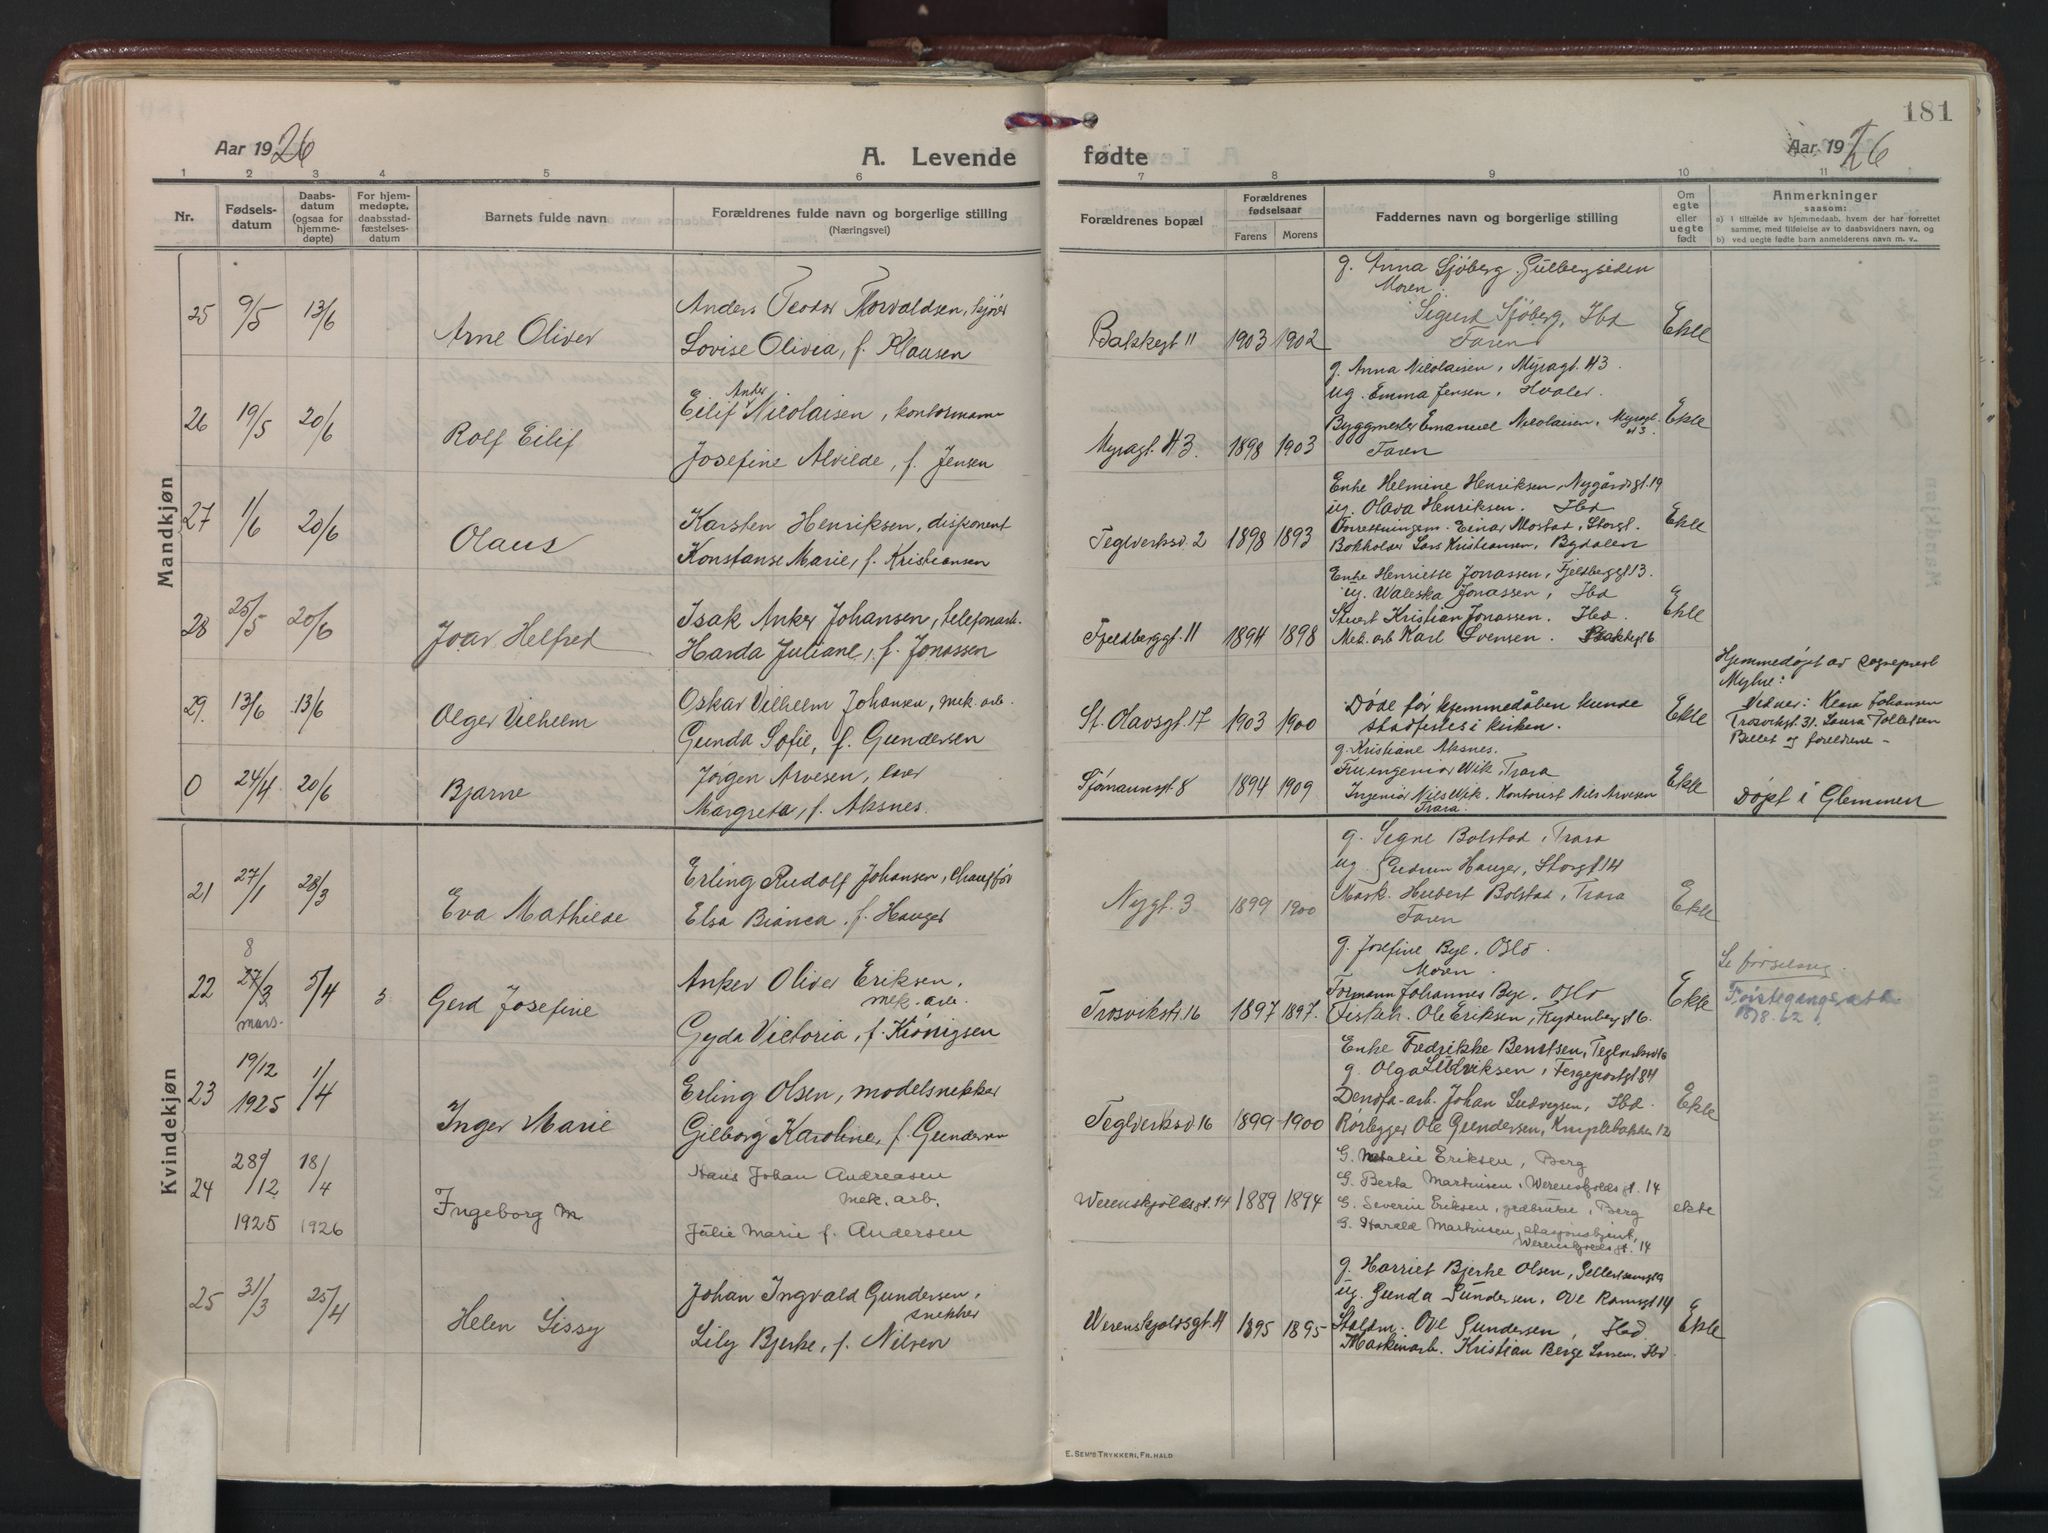 181
Aar 1926
A. Levende
fødte
Aar 1926
1 2 3 4 5 6 7 8 9 10 11
Nr.
Fødsels-
datum
Daabs-
datum
(ogsaa for
hjemme-
døpte)
For hjem-
medøpte,
daabsstad-
fæstelses-
datum
Barnets fulde navn
Forældrenes fulde navn og borgerlige stilling
(Næringsvei)
Forældrenes bopæl
Forældrenes
fødselsaar
Farens Morens
Faddernes navn og borgerlige stilling
Om
egte
eller
uegte
født
Anmerkninger
saasom:
a) i tilfælde av hjemmedaab, hvem der har forrettet
samme, med tilføielse av to daabsvidners navn, og
b) ved uegte fødte barn anmelderens navn m. v.
Mandkjøn
25 9/5 13/6 Arne Oliver
Anders Teodor Thorvaldsen, kjører
Lovise Olivia, f. Klausen
Bakkegt 11 1903 1902
g. Anna Sjöberg Gulbergsiden
Moren
Sigurd Sjöberg, Ibd
Faren
Ekte
26 19/5 20/6 Rolf Eilif
Eilif Ander Nicolaisen, kontormann
Josefine Alvilde, f. Jensen
Myragt. 43. 1898 1903
g. Anna Nicolaisen, Myragt. 43.
ug. Emma Jensen, Hvaler.
Byggmester Emanuel Nicolaisen, Myragt. 43.
Faren
Ekte
27 1/6 20/6 Olaus
Karsten Henriksen, disponent
Konstanse Marie, f. Kristiansen
Teglverksv. 2 1898 1893
Enke Helmine Henriksen, Nygårdsgt. 19
ug. Olava Henriksen. Ibd
Forretningsm. Einar Mostad, Storgt.
Bokholder Lars Kristiansen, Bydalen
Ekte
28 25/5 20/6 Joar Helfred
Isak Anker Johansen, telefonarb.
Harda Juliane, f. Jonassen
Fjeldberggt. 11 1894 1898
Enke Henriette Jonassen, Fjeldberggt 13.
ug. Waleska Jonassen, Ibd
Stuert Kristian Jonassen. Ibd.
Mek. arb Karl Svensen. Bakkegt 6
Ekte
29. 13/6 13/6 Olger Vilhelm
Oskar Vilhelm Johansen, mek. arb.
Gunda Sofie, f. Gundersen
St. Olavsgt. 17 1903 1900
Døde før hjemmedåben kunde
stadfestes i kirken.
Ekte
Hjemmedøpt av sogneprest
Myhre:
Vidner: Klara Johansen
Trosvikgt. 31. Laura Tollefsen
Billet og foreldrene –
0 24/4 20/6 Bjarne
Jørgen Arvesen, løver
Margreta, f. Aksnes.
Sjømannsgt. 8 1894 1909
g. Kristiane Aksnes.
Fru ingeniør Wik, Trara
Ingeniør Nils Wik. Kontorist Nils Arvesen
Trara.
Ekte
Døpt i Glemmen
Kvindekjøn
21 27/1 28/3 Eva Mathilde
Erling Rudolf Johansen, Chauffør
Elsa Bianca, f. Hauger
Nygt. 3 1899 1900
g. Signe Bolstad, Trara
ug. Gudrun Hauger, Storgt 14
Mask. Hubert Bolstad, Trara
Faren
Ekte
22 8 27/3 mars. 5/4 5. Gerd Josefine
Anker Oliver Eriksen,
mek. arb.
Gyda Victoria, f. Kiønigsen
Trosvikstr. 16 1897 1897.
g. Josefine Bye. Oslo.
Moren
Formann Johannes Bye, Oslo
Fisker. Ole Eriksen, Rydenbergst 6.
Ekte
Se fødselsang.
Førstegangsatt.
18/8-62.
23 19/12 1925 1/4 Inger Marie
Erling Olsen, modelsnekker
Gilborg Karoline, f. Gundersen
Teglverksv 16 1899 1900
Enke Fredrikke Berntsen, Teglverksv 16
g. Olga Ludviksen, Fergeportgt 84
Denofa-arb. Johan Ludvigsen, Ibd.
Rørlegger Ole Gundersen, Kniplebakken 12
Ekte
24 28/12 1925 18/4 1926 Ingeborg M
Hans Johan Andreasen
mek. arb.
Julie Marie f. Andersen
Werenskjoldsgt. 14 1889 1894
G. Natalie Eriksen, Berg
G. Berta Martinsen, Werenskjoldsgt. 14
G. Severin Eriksen, gårdbruker, Berg
G. Harald Martinsen, stasjonsbetjent,
Werenskjoldsgt. 14
ekte
25 31/3 25/4 Helen Lissy
Johan Ingvald Gundersen,
snekker
Lily Bjerke, f. Nilsen
Werenskjoldsgt. 11 1895 1895
g. Harriet Bjerke Olsen,
ug. Gunda Gundersen, Ove Ramsgt 14
Staldm. Ove Gundersen, Ibd.
Maskinarb. Kristian Berge Larsen. Ibd.
Ekte
E. SEM'S TRYKKERI, FR.HALD